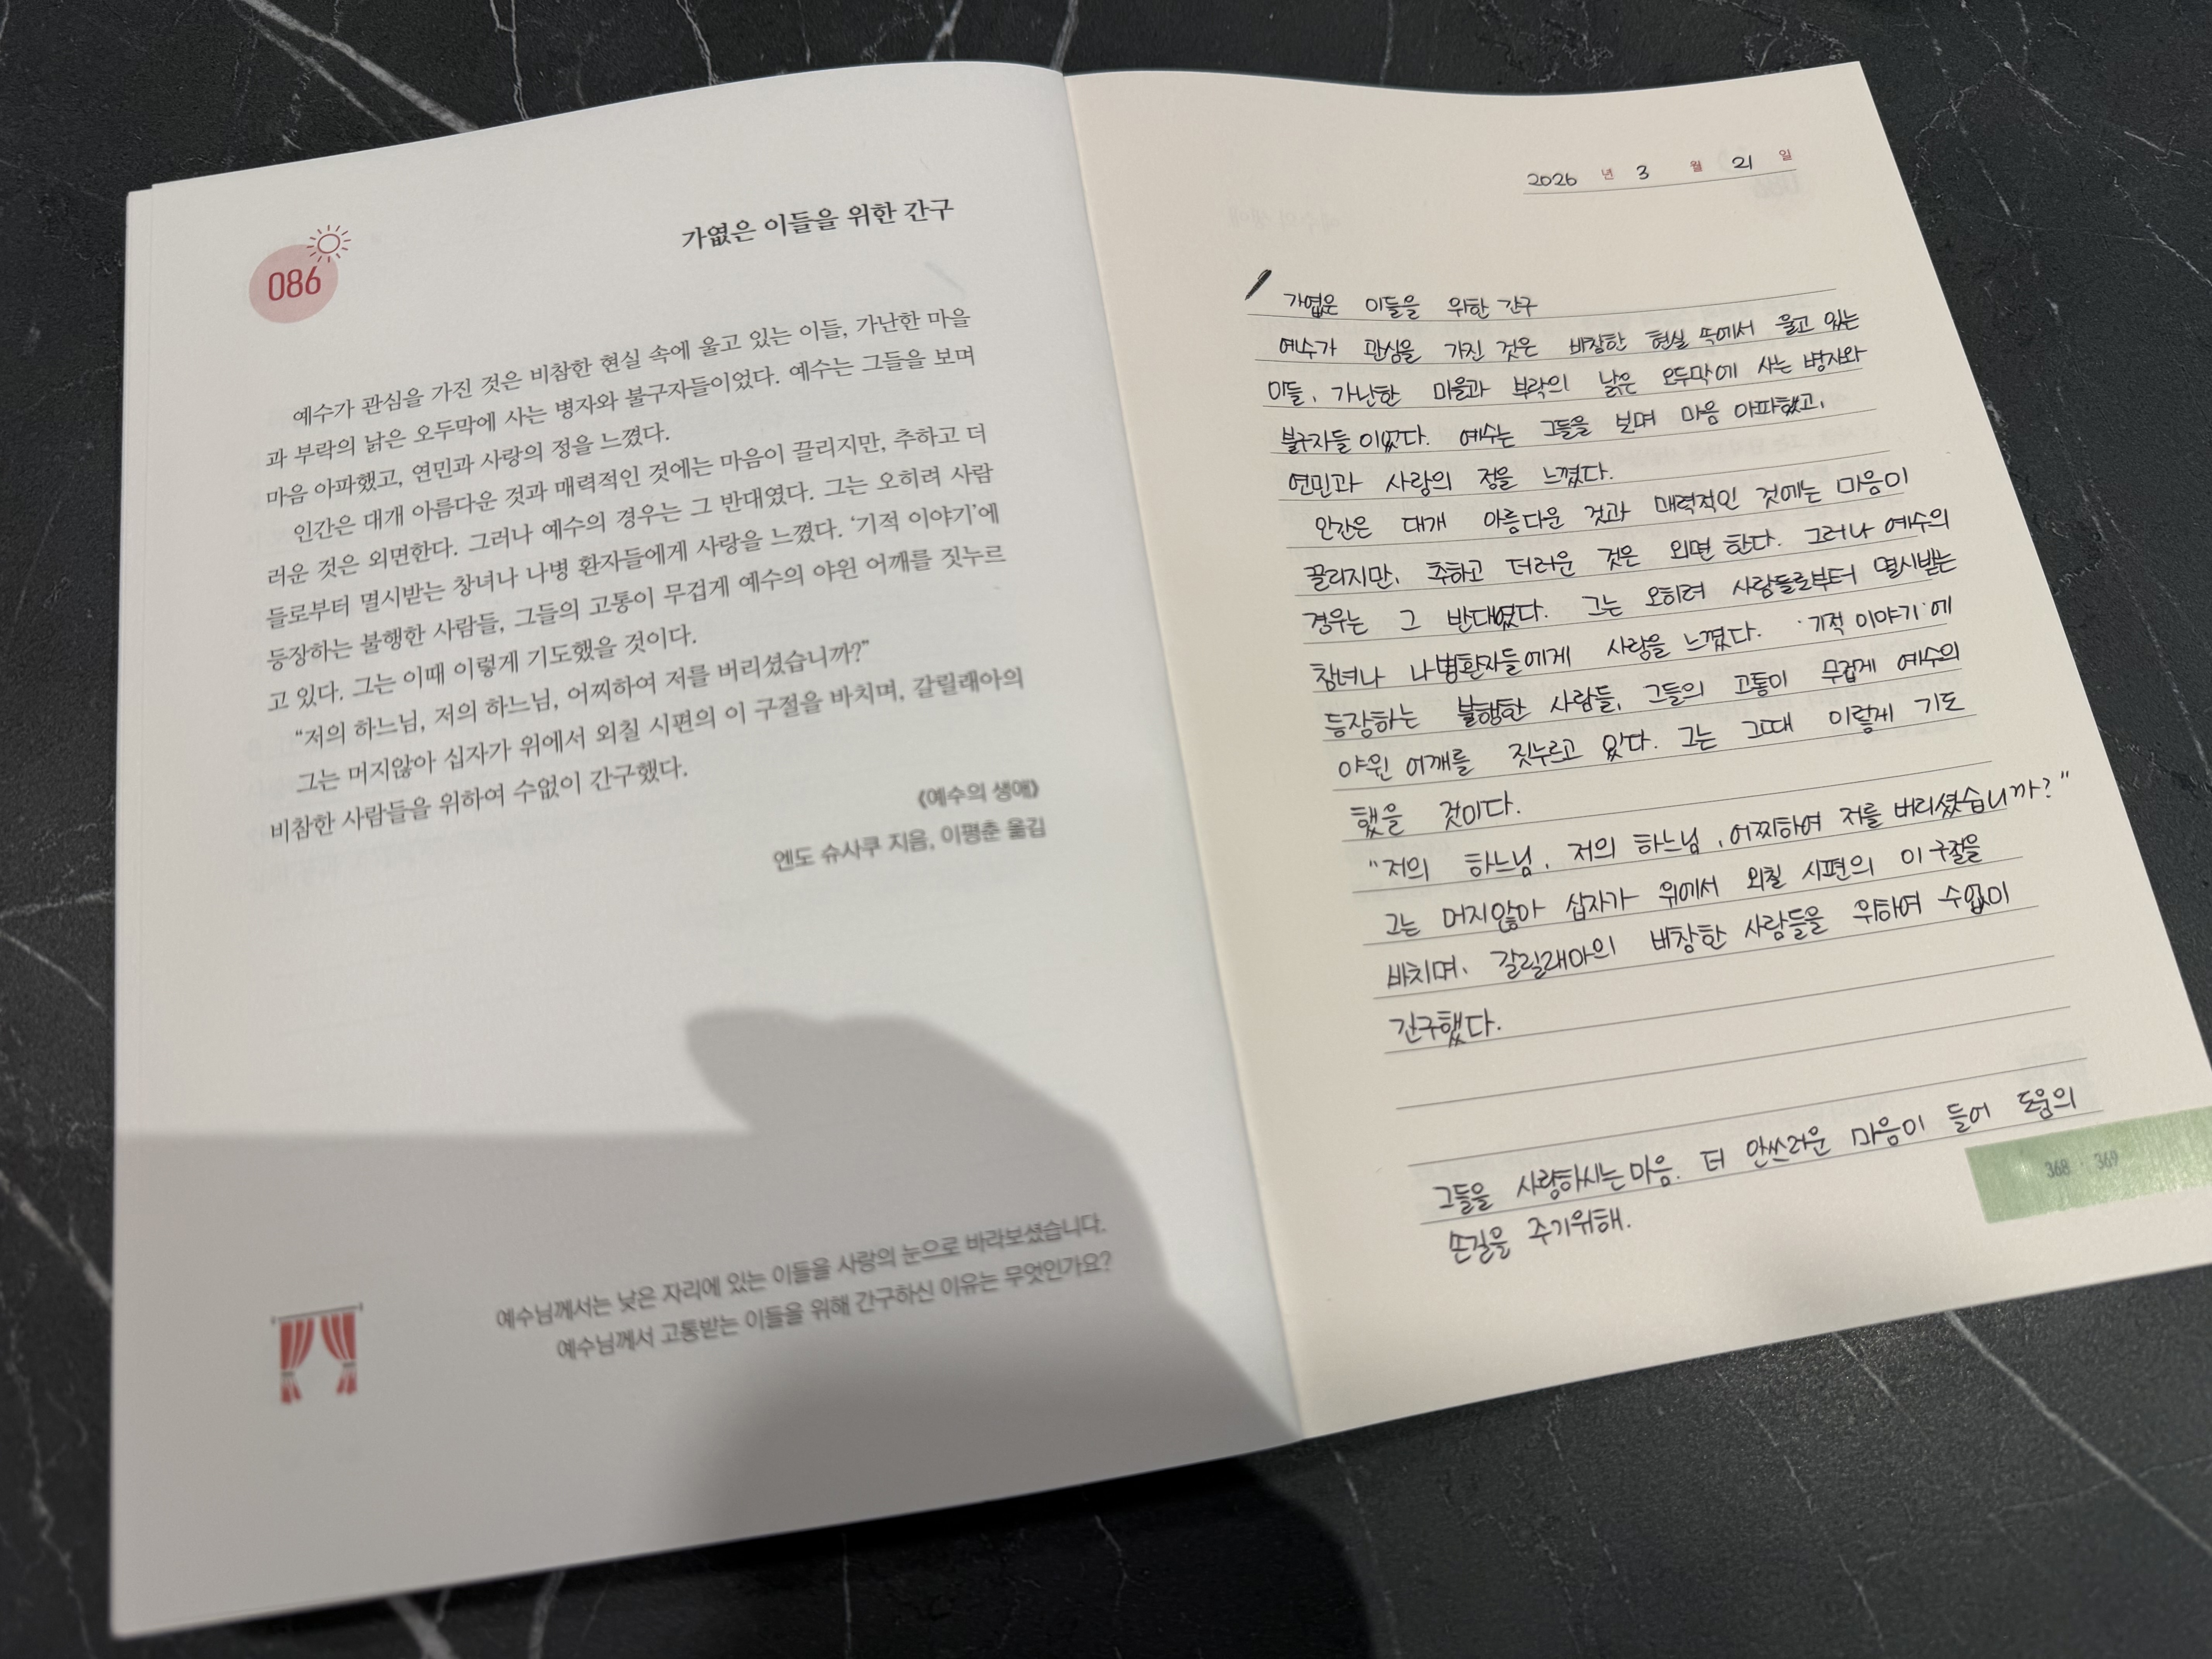 086
가엾은 이들을 위한 간구
예수가 관심을 가진 것은 비참한 현실 속에 울고 있는 이들, 가난한 마을
과 부락의 낡은 오두막에 사는 병자와 불구자들이었다. 예수는 그들을 보며
마음 아파했고, 연민과 사랑의 정을 느꼈다.
인간은 대개 아름다운 것과 매력적인 것에는 마음이 끌리지만, 추하고 더
러운 것은 외면한다. 그러나 예수의 경우는 그 반대였다. 그는 오히려 사람
들로부터 멸시받는 창녀나 나병 환자들에게 사랑을 느꼈다. ‘기적 이야기’에
등장하는 불행한 사람들, 그들의 고통이 무겁게 예수의 야윈 어깨를 짓누르
고 있다. 그는 이때 이렇게 기도했을 것이다.
“저의 하느님, 저의 하느님, 어찌하여 저를 버리셨습니까?”
그는 머지않아 십자가 위에서 외칠 시편의 이 구절을 바치며, 갈릴래아의
비참한 사람들을 위하여 수없이 간구했다.
《예수의 생애》
엔도 슈사쿠 지음, 이평춘 옮김
예수님께서는 낮은 자리에 있는 이들을 사랑의 눈으로 바라보셨습니다.
예수님께서 고통받는 이들을 위해 간구하신 이유는 무엇인가요?
2026 년 3 월 21 일
가엾은 이들을 위한 간구
예수가 관심을 가진 것은 비참한 현실 속에서 울고 있는
이들, 가난한 마을과 부락의 낡은 오두막에 사는 병자와
불구자들이었다. 예수는 그들을 보며 마음 아파했고,
연민과 사랑의 정을 느꼈다.
인간은 대개 아름다운 것과 매력적인 것에는 마음이
끌리지만, 추하고 더러운 것은 외면 한다. 그러나 예수의
경우는 그 반대였다. 그는 오히려 사람들로부터 멸시받는
창녀나 나병환자들에게 사랑을 느꼈다. '기적 이야기'에
등장하는 불행한 사람들, 그들의 고통이 무겁게 예수의
야윈 어깨를 짓누르고 있다. 그는 그때 이렇게 기도
했을 것이다.
"저의 하느님, 저의 하느님, 어찌하여 저를 버리셨습니까?"
그는 머지않아 십자가 위에서 외칠 시편의 이 구절을
바치며, 갈릴래아의 비참한 사람들을 위하여 수없이
간구했다.
그들을 사랑하시는 마음. 더 안쓰러운 마음이 들어 도움의
손길을 주기위해.
368 · 369